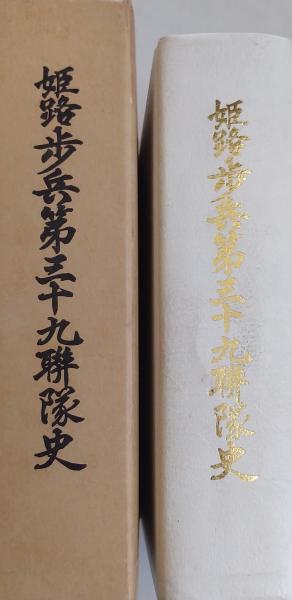 姫路歩兵第三十九聯隊史
姫路歩兵第三十九聯隊史